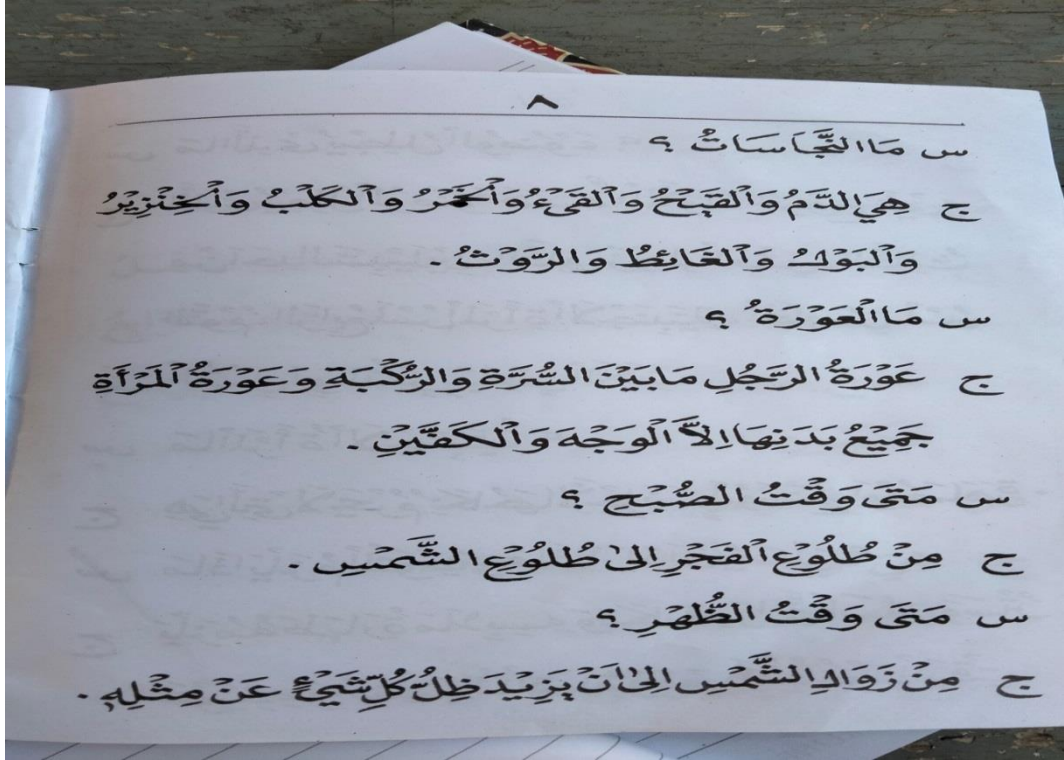 ٨
س مَا النَّجَاسَاتُ ؟
ج هِيَ الدَّمُ وَٱلْقَيْحُ وَٱلْقَىْءُ وَٱلْخَمْرُ وَٱلْكَلْبُ وَٱلْخِنْزِيْرُ
وَٱلْبَوْلُ وَٱلْغَائِطُ وَالرَّوْثُ
س مَا الْعَوْرَةُ ؟
ج عَوْرَةُ الرَّجُلِ مَا بَيْنَ السُّرَّةِ وَالرُّكْبَةِ وَعَوْرَةُ ٱلْمَرْأَةِ
جَمِيْعُ بَدَنِهَا اِلاَّ ٱلْوَجْهَ وَٱلْكَفَّيْنِ .
س مَتَى وَقْتُ الصُّبْحِ ؟
ج مِنْ طُلُوْعِ ٱلْفَجْرِ اِلىٰ طُلُوْعِ الشَّمْسِ .
س مَتَى وَقْتُ الظُّهْرِ ؟
ج مِنْ زَوَالِ الشَّمْسِ اِلىٰ اَنْ يَزِيْدَ ظِلُّ كُلِّ شَيْءٍ عَنْ مِثْلِهِ .